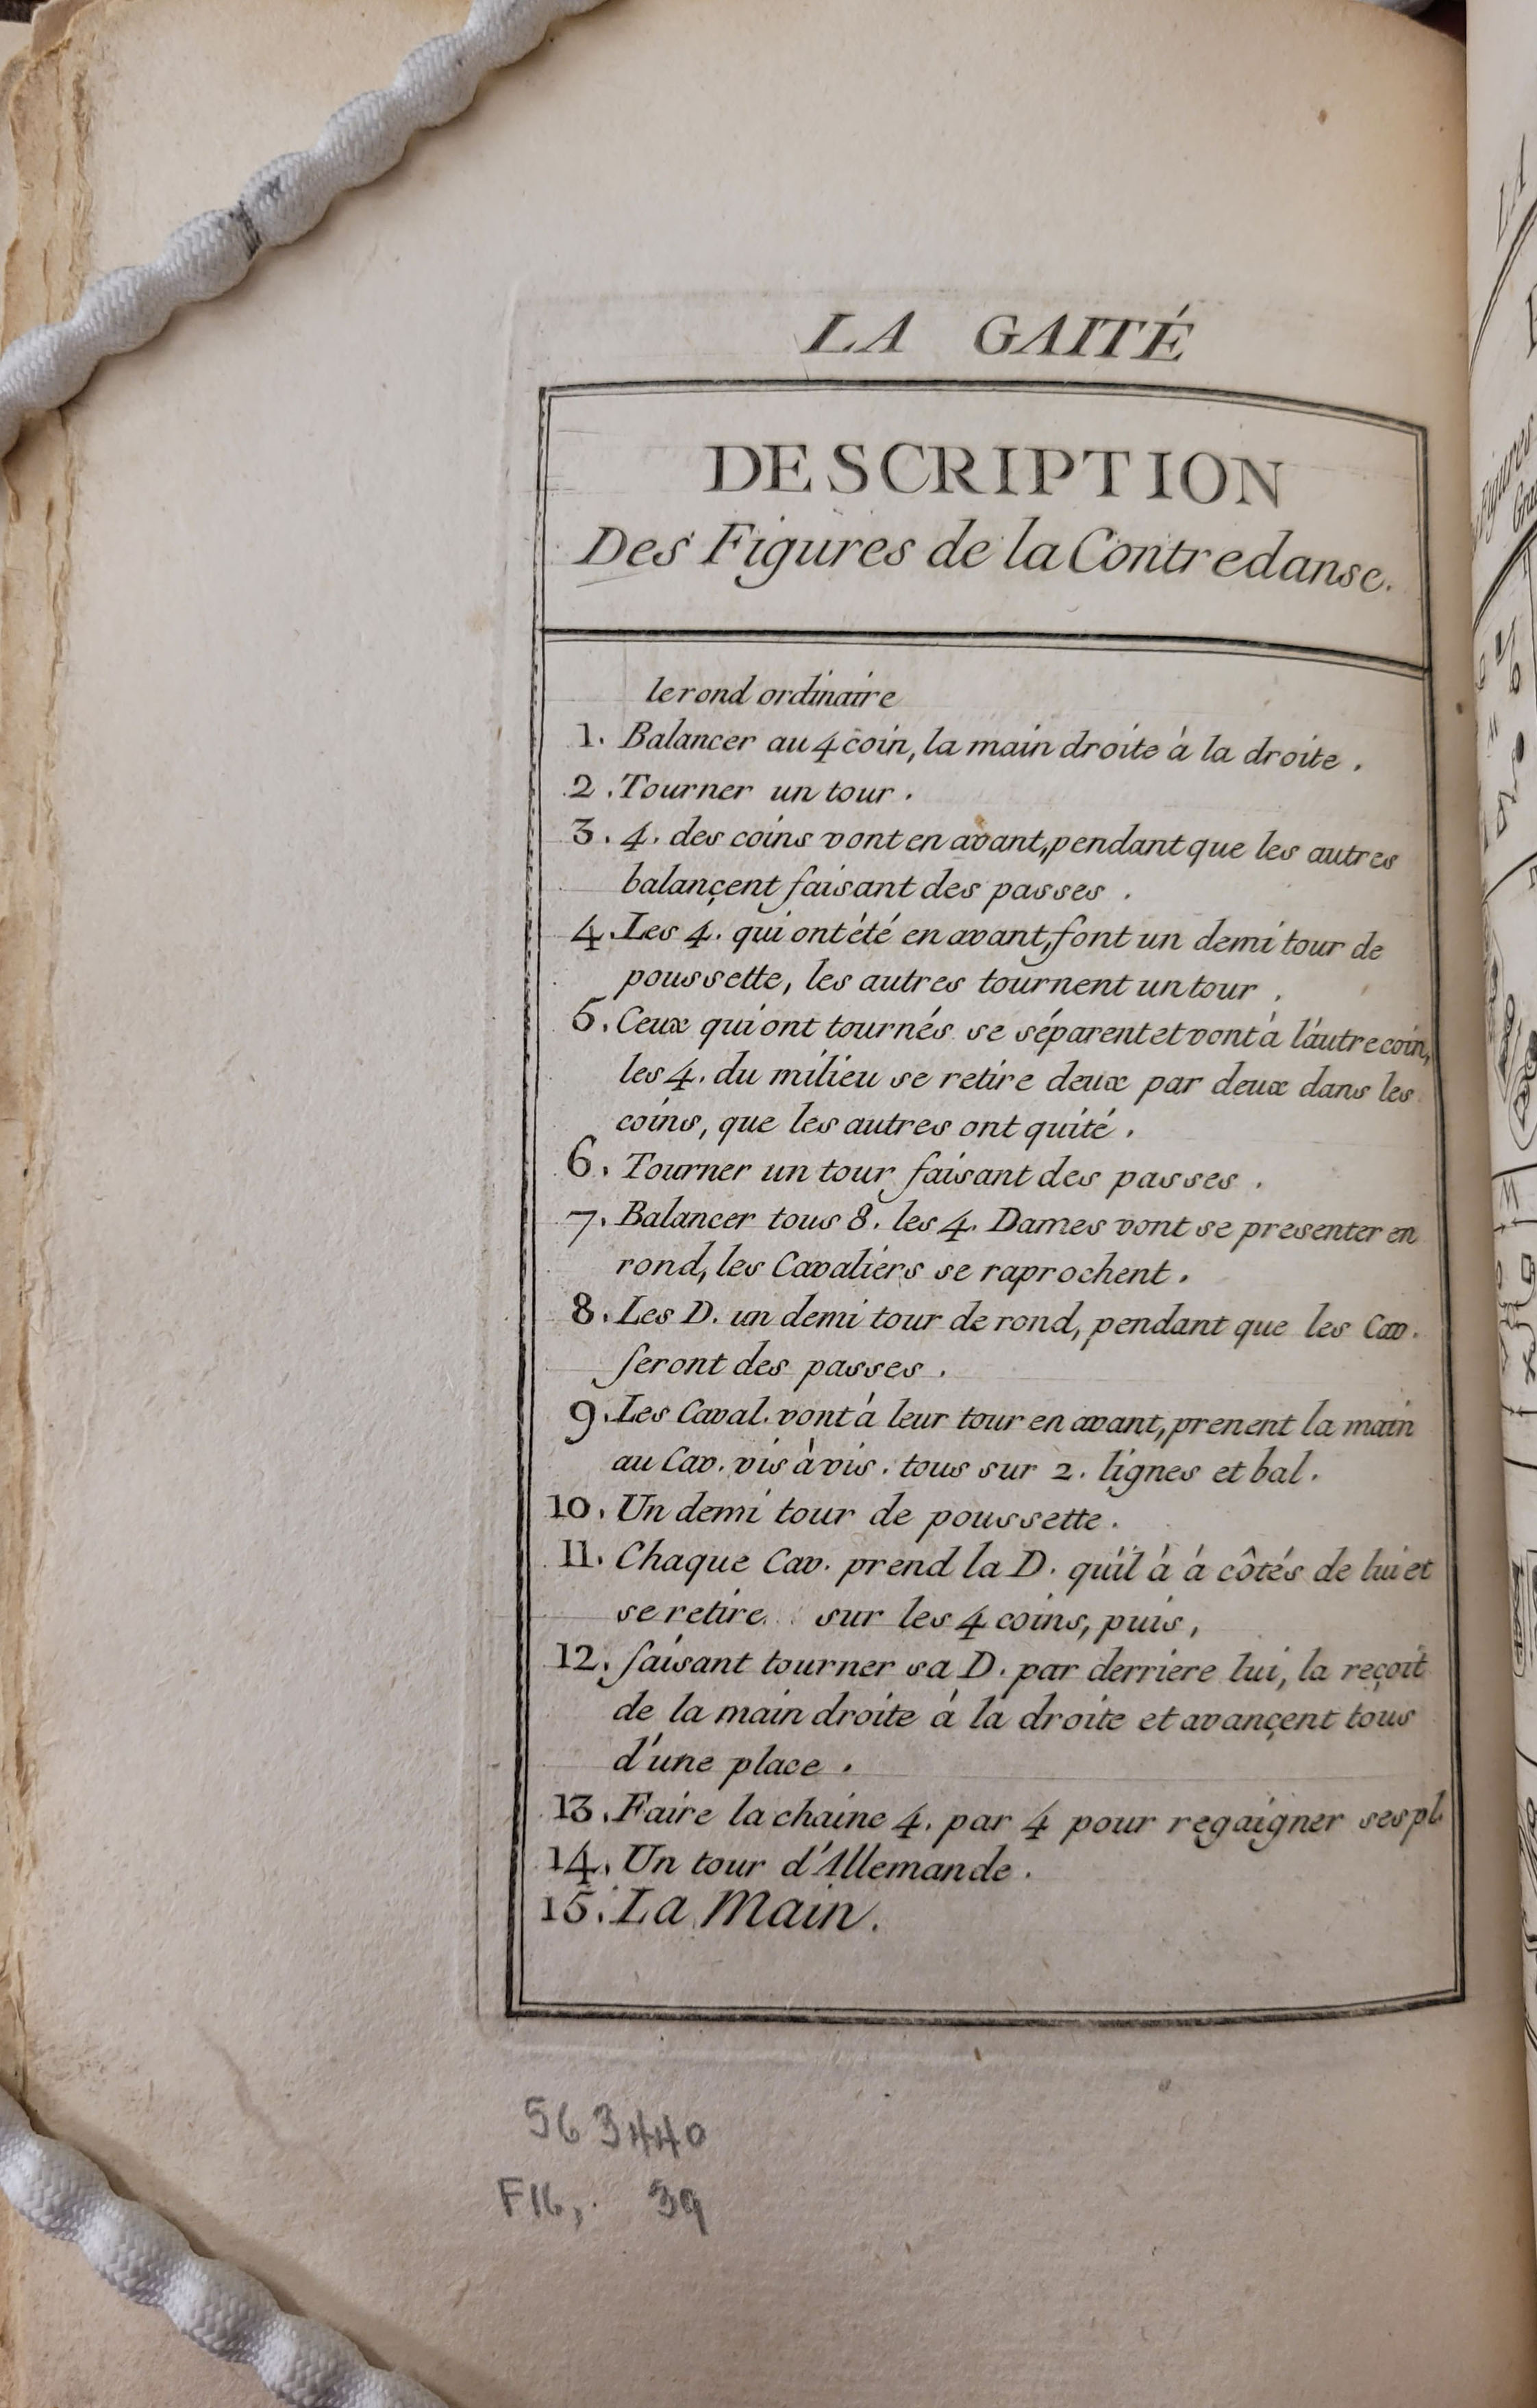 LA GAITÉ
DESCRIPTION
Des Figures de la Contredanse.
le rond ordinaire
1. Balancer au 4 coin, la main droite à la droite.
2. Tourner un tour.
3. 4. des coins vont en avant, pendant que les autres
balançent faisant des passes.
4. Les 4. qui ont été en avant, font un demi tour de
poussette, les autres tournent un tour.
5. Ceux qui ont tournés se séparent et vont à l'autre coin,
les 4. du milieu se retire deux par deux dans les
coins, que les autres ont quité.
6. Tourner un tour faisant des passes.
7. Balancer tous 8. les 4. Dames vont se presenter en
rond, les Cavaliers se raprochent.
8. Les D. un demi tour de rond, pendant que les Cav.
feront des passes.
9. Les Caval. vont à leur tour en avant, prenent la main
au Cav. vis à vis. tous sur 2. lignes et bal.
10. Un demi tour de poussette.
11. Chaque Cav. prend la D. qu'il à à côtés de lui et
se retire sur les 4 coins, puis,
12. faisant tourner sa D. par derriere lui, la reçoit
de la main droite à la droite et avançent tous
d'une place.
13. Faire la chaine 4. par 4 pour regaigner ses pl.
14. Un tour d'Allemande.
15. La Main.
563440
F16, 39